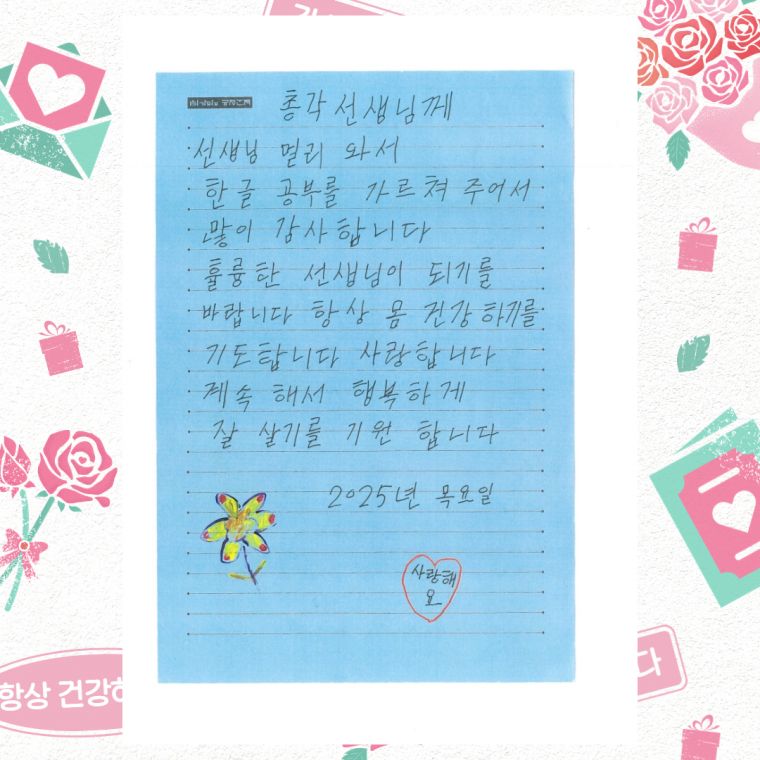 총각선생님께
선생님 멀리 와서
한글 공부를 가르쳐 주어서
많이 감사합니다
훌륭한 선생님이 되기를
바랍니다 항상 몸 건강하기를
기도합니다 사랑합니다
계속 해서 행복하게
잘 살기를 기원 합니다
2025년 목요일
사랑해
요
항상 건강하
다